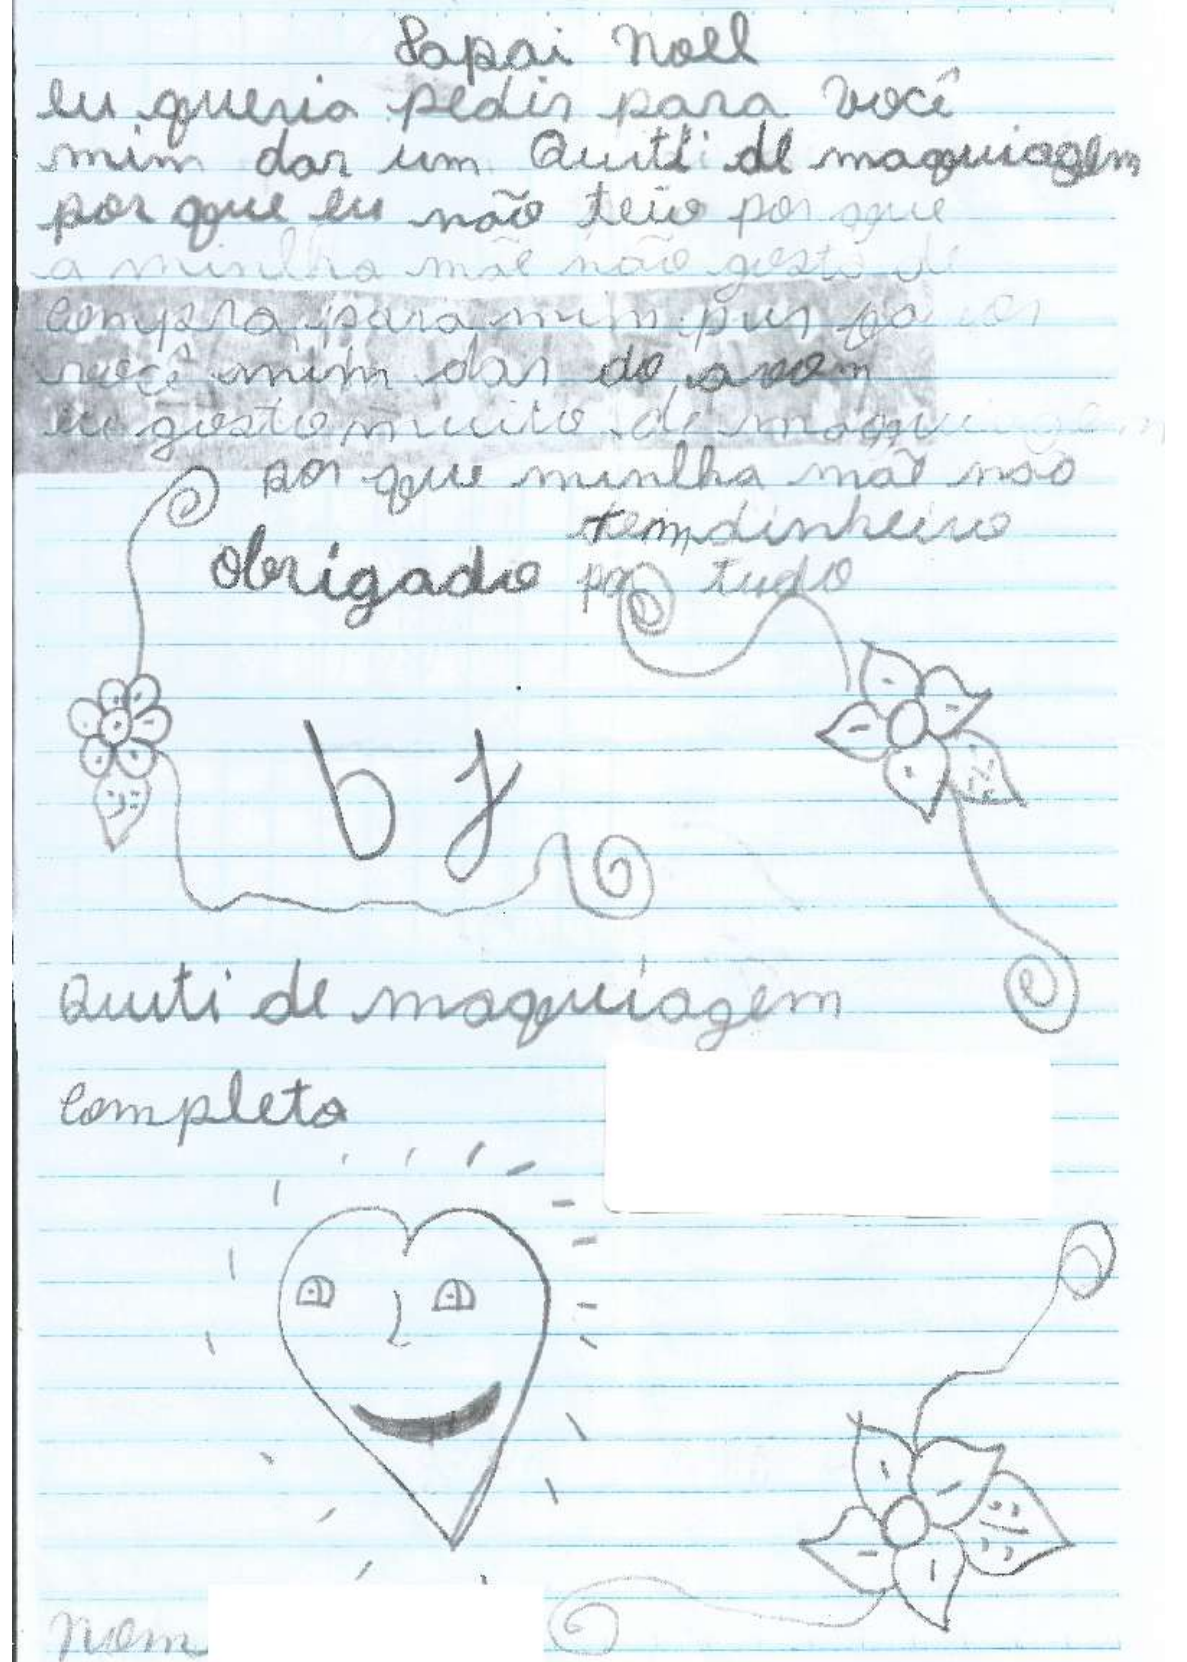 Papai Noell
eu queria pedir para você
mim dar um Quitti de maquiagem
por que eu não teio por que
a minlha mãe não gosta de
compra para mim pur favor
você mim dar da avom
eu gosto muito de maquiagem
por que minlha mãe não
tem dinheiro
obrigado pra tudo
bj
Quiti de maquiagem
completo
nom